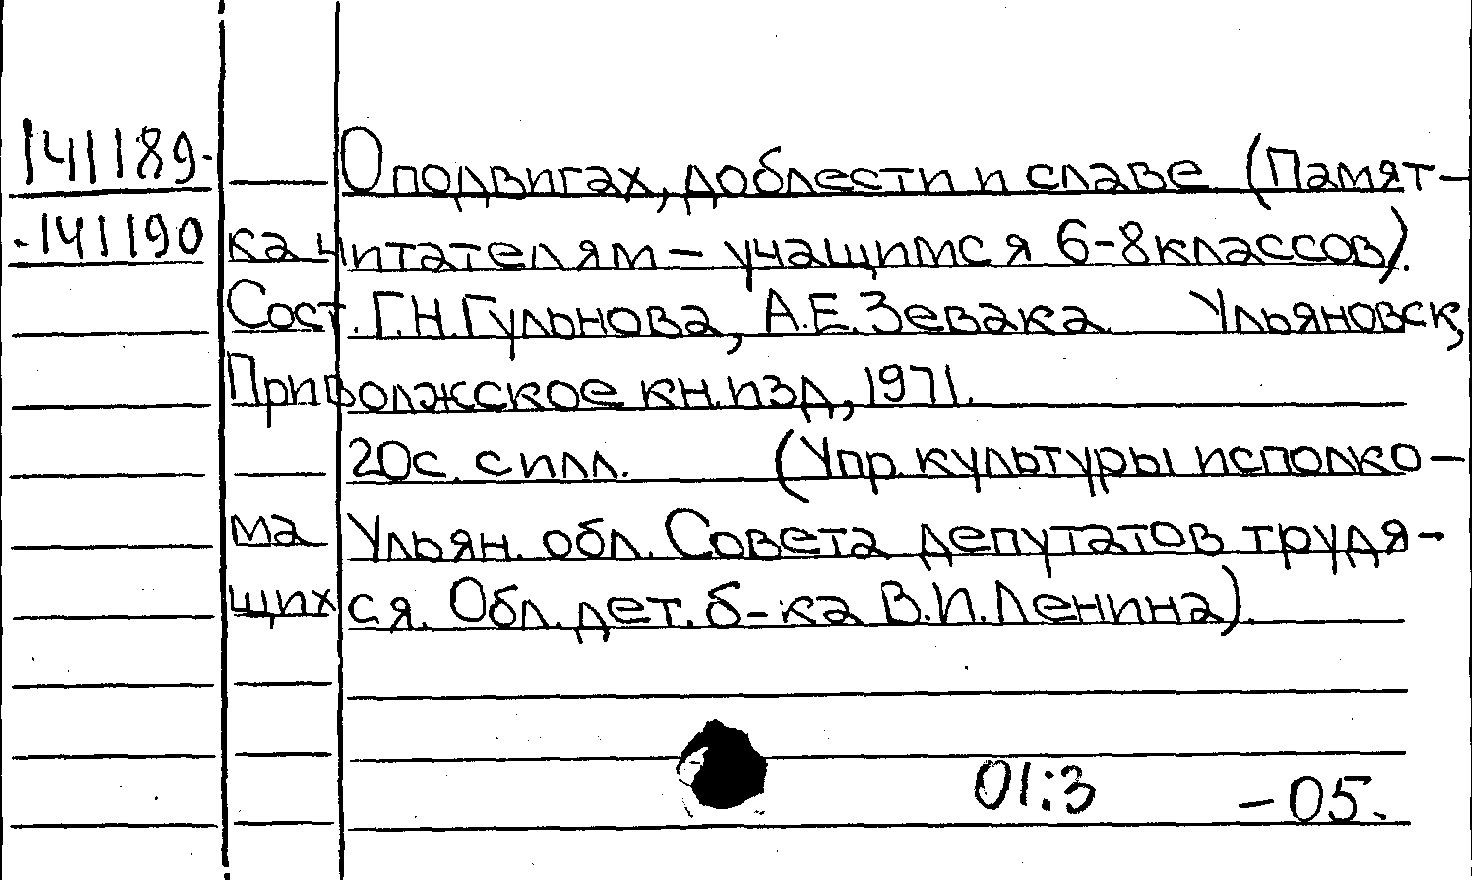 141189- О подвигах, доблести и славе (Памят-
-141190 ка читателям - учащимся 6-8 классов).
Сост. Г.Н.Гульнова, А.Е.Зевака. Ульяновск,
Приволжское кн.изд, 1971.
20с. с илл. (Упр. культуры исполко-
ма Ульян. обл. Совета депутатов трудя-
щихся. Обл. дет. б-ка В.И.Ленина).
01:3 -05.